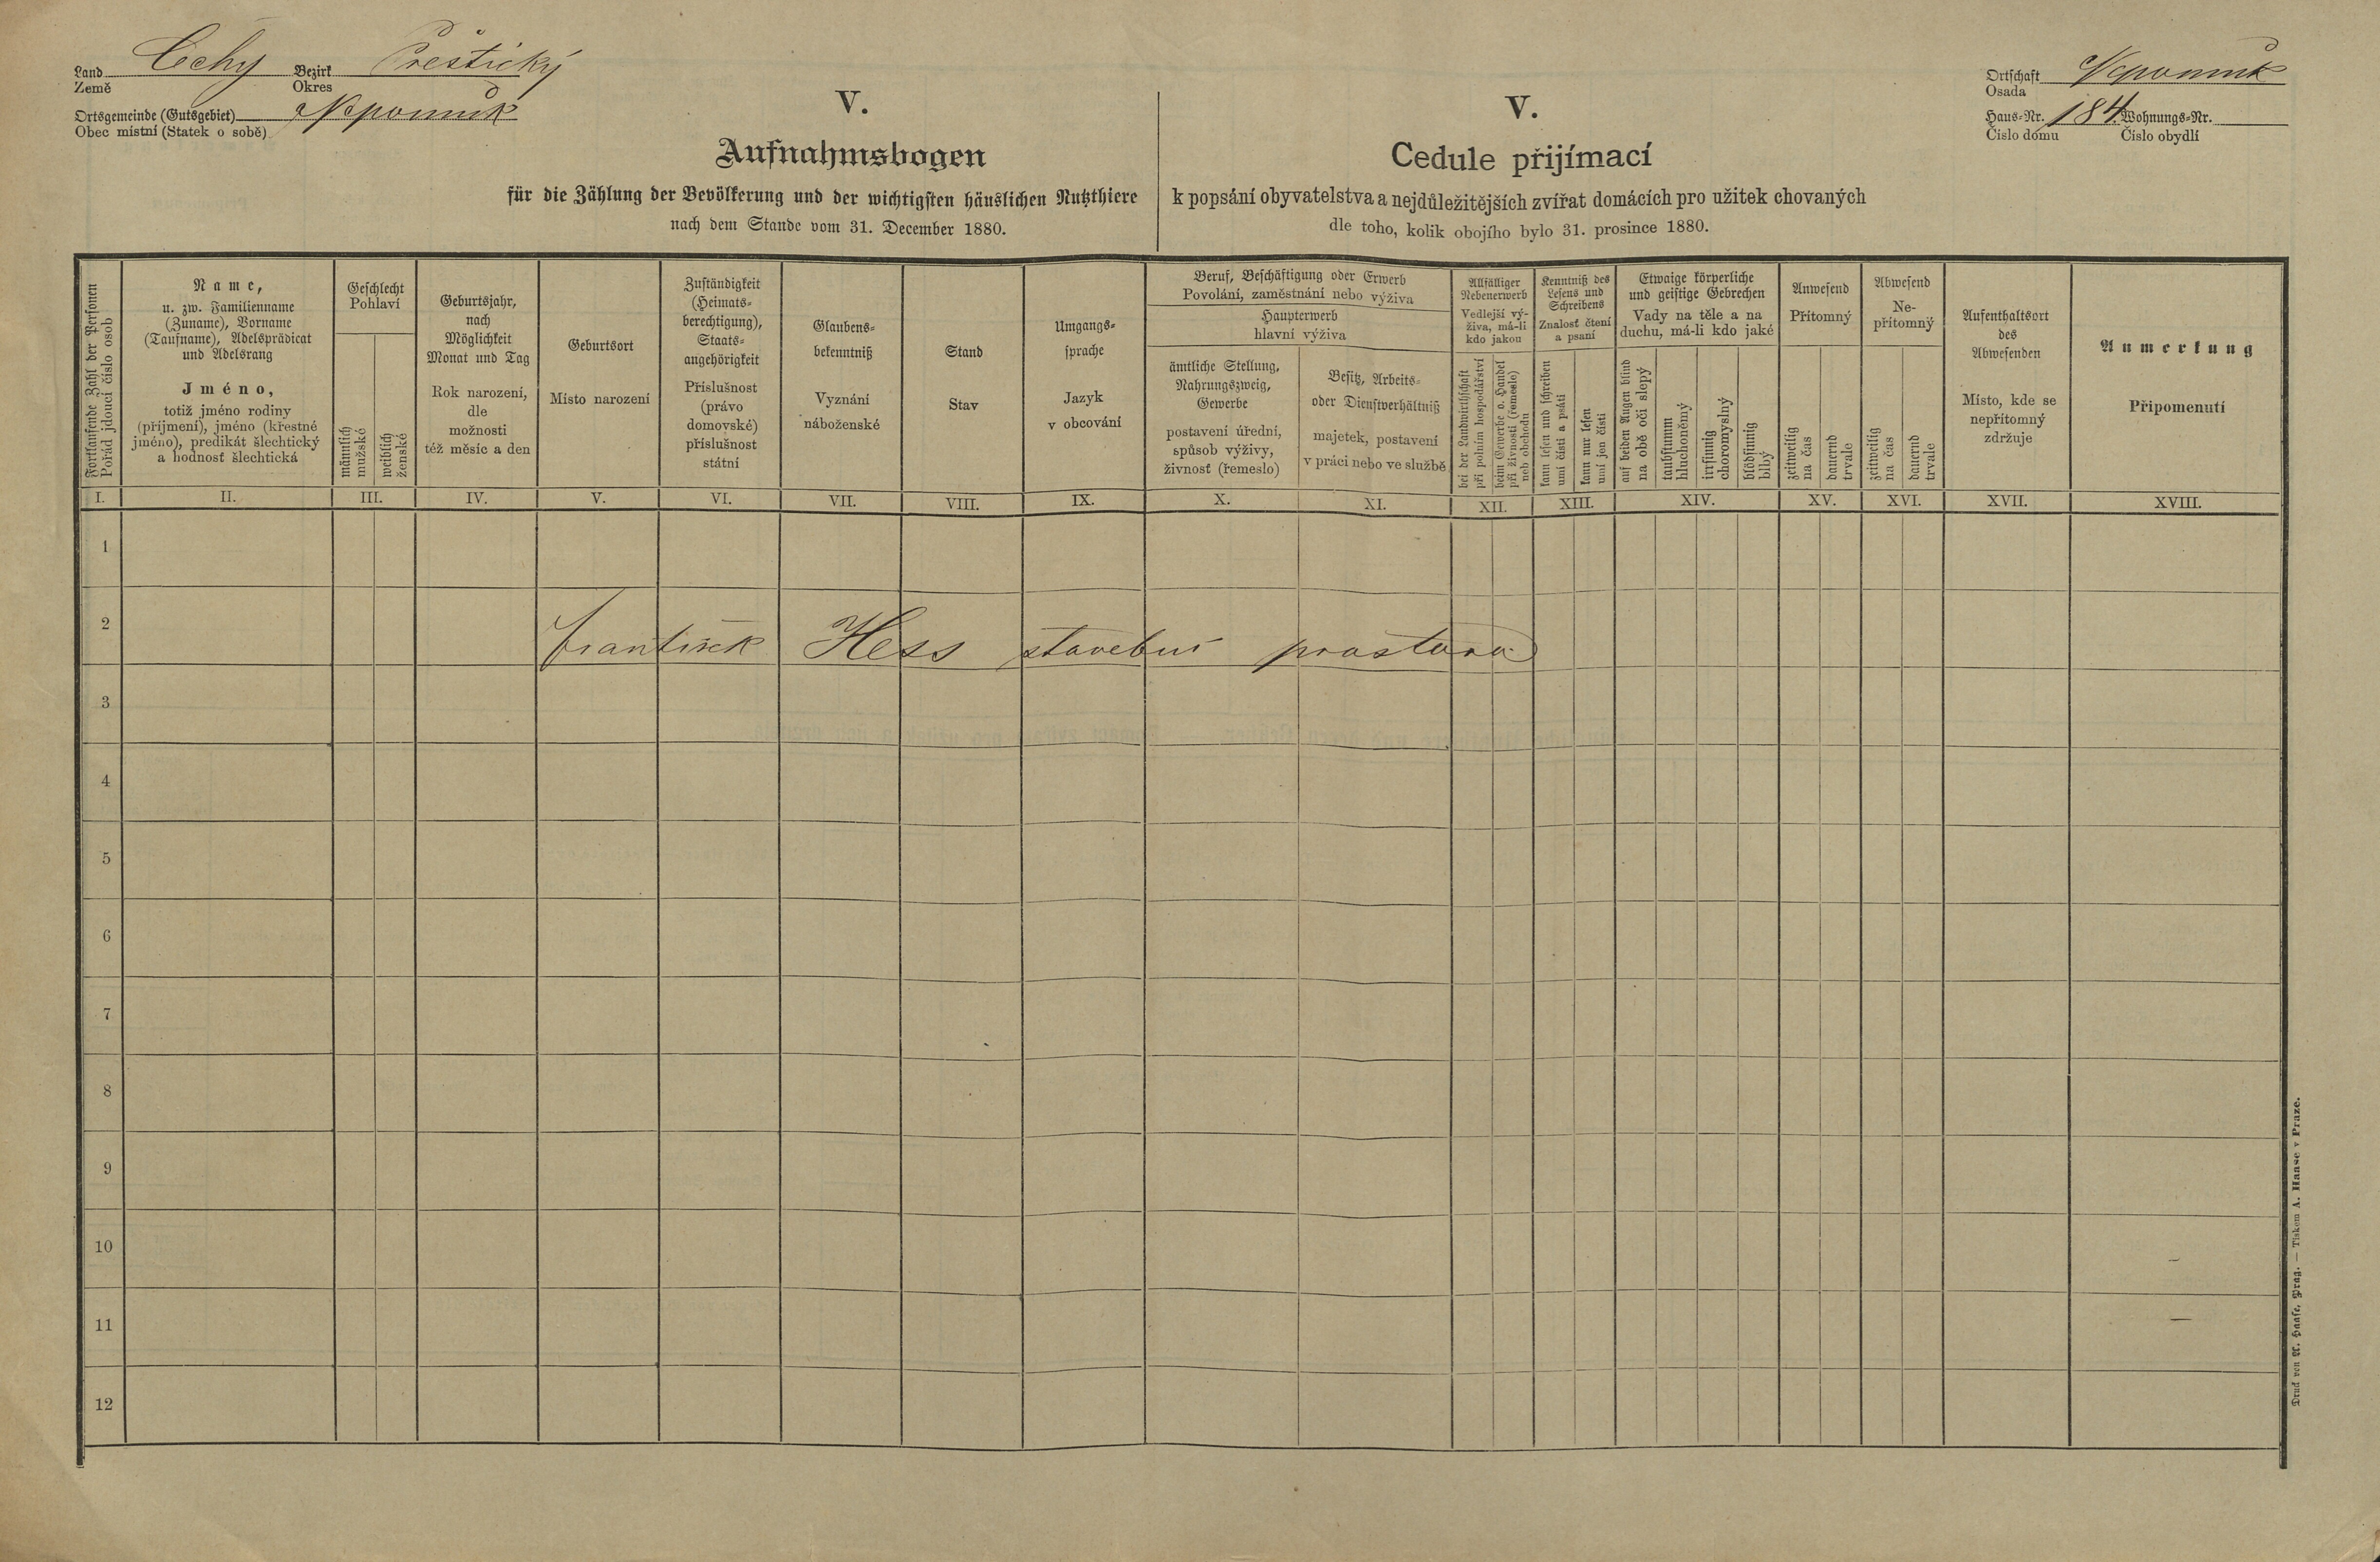 Land Čechy Bezirk Přeštický
Země Okres
Ortsgemeinde (Gutsgebiet) Nepomuk
Obec místní (Statek o sobě)
Ortschaft Nepomuk
Osada
Haus-Nr. 184. Wohnungs-Nr.
Číslo domu Číslo obydlí
V.
Aufnahmsbogen
für die Zählung der Bevölkerung und der wichtigsten häuslichen Nutzthiere
nach dem Stande vom 31. December 1880.
V.
Cedule přijímací
k popsání obyvatelstva a nejdůležitějších zvířat domácích pro užitek chovaných
dle toho, kolik obojího bylo 31. prosince 1880.
Fortlaufende Zahl der Personen
Pořád jdoucí číslo osob
Name,
u. zw. Familienname
(Zuname), Vorname
(Taufname), Adelsprädicat
und Adelsrang
Jméno,
totiž jméno rodiny
(příjmení), jméno (křestné
jméno), predikát šlechtický
a hodnosť šlechtická
Geschlecht
Pohlaví
männlich
mužské
weiblich
ženské
Geburtsjahr,
nach
Möglichkeit
Monat und Tag
Rok narození,
dle
možnosti
též měsíc a den
Geburtsort
Místo narození
Zuständigkeit
(Heimats-
berechtigung),
Staats-
angehörigkeit
Příslušnost
(právo
domovské)
příslušnost
státní
Glaubens-
bekenntniß
Vyznání
náboženské
Stand
Stav
Umgangs-
sprache
Jazyk
v obcování
Beruf, Beschäftigung oder Erwerb
Povolání, zaměstnání nebo výživa
Haupterwerb
hlavní výživa
ämtliche Stellung,
Nahrungszweig,
Gewerbe
postavení úřední,
spůsob výživy,
živnosť (řemeslo)
Besitz, Arbeits-
oder Dienstverhältniß
majetek, postavení
v práci nebo ve službě
Allfälliger
Nebenerwerb
Vedlejší vý-
živa, má-li
kdo jakou
bei der Landwirthschaft
při polním hospodářství
beim Gewerbe o. Handel
při živnosti (řemesle)
neb obchodu
Kenntniß des
Lesens und
Schreibens
Znalosť čtení
a psaní
kann lesen und schreiben
umí čísti a psáti
kann nur lesen
umí jen čísti
Etwaige körperliche
und geistige Gebrechen
Vady na těle a na
duchu, má-li kdo jaké
auf beiden Augen blind
na obě oči slepý
taubstumm
hluchoněmý
irrsinnig
choromyslný
blödsinnig
blbý
Anwesend
Přítomný
zeitweilig
na čas
dauernd
trvale
Abwesend
Ne-
přítomný
zeitweilig
na čas
dauernd
trvale
Aufenthaltsort
des
Abwesenden
Místo, kde se
nepřítomný
zdržuje
Anmerkung
Připomenutí
I. II. III. IV. V. VI. VII. VIII. IX. X. XI. XII. XIII. XIV. XV. XVI. XVII. XVIII.
1
2 František Hess stavební prostora
3
4
5
6
7
8
9
10
11
12
Druck von A. Haase, Prag. — Tiskem A. Haase v Praze.